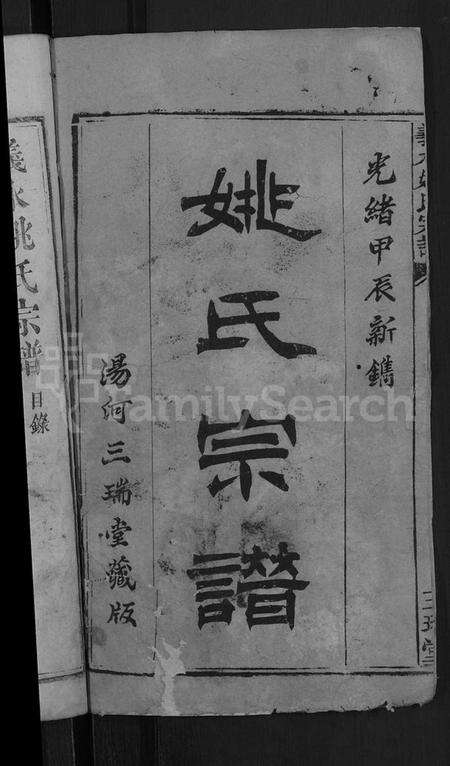 光緒甲辰新鐫
姚氏宗譜
湯河三瑞堂藏版
義水姚氏宗譜
三瑞堂
義水姚氏宗譜
目錄
FamilySearch